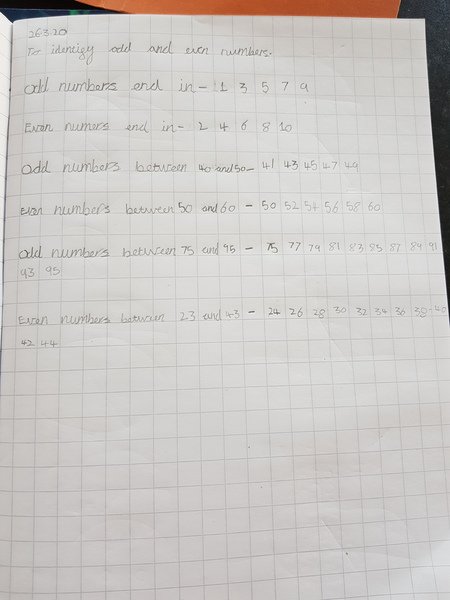 26.3.20
To identify odd and even numbers.
Odd numbers end in - 1 3 5 7 9
Even numers end in - 2 4 6 8 10
Odd numbers between 40 and 50 - 41 43 45 47 49
Even numbers between 50 and 60 - 50 52 54 56 58 60
Odd numbers between 75 and 95 - 75 77 79 81 83 85 87 89 91
93 95
Even numbers between 23 and 43 - 24 26 28 30 32 34 36 38 40
42 44